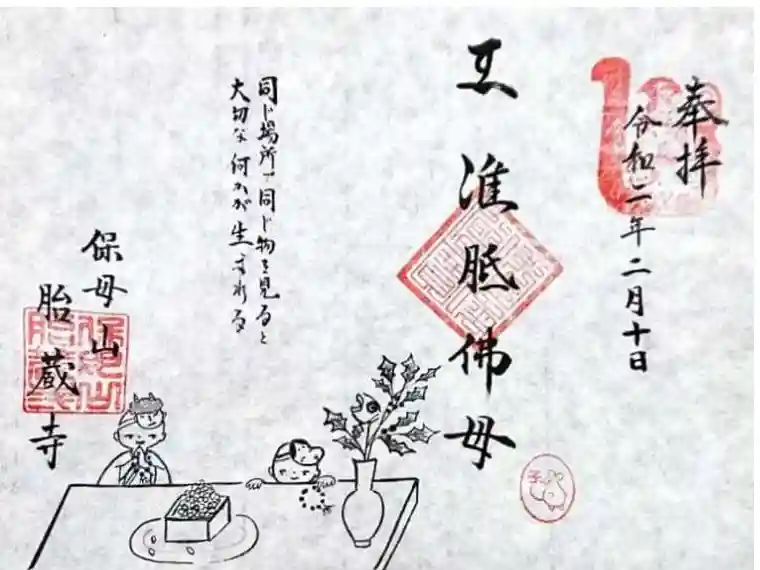 奉拝
令和二年二月十日
准胝佛母
子
同じ場所で同じ物を見ると
大切な何かが生まれる
保母山
胎蔵寺